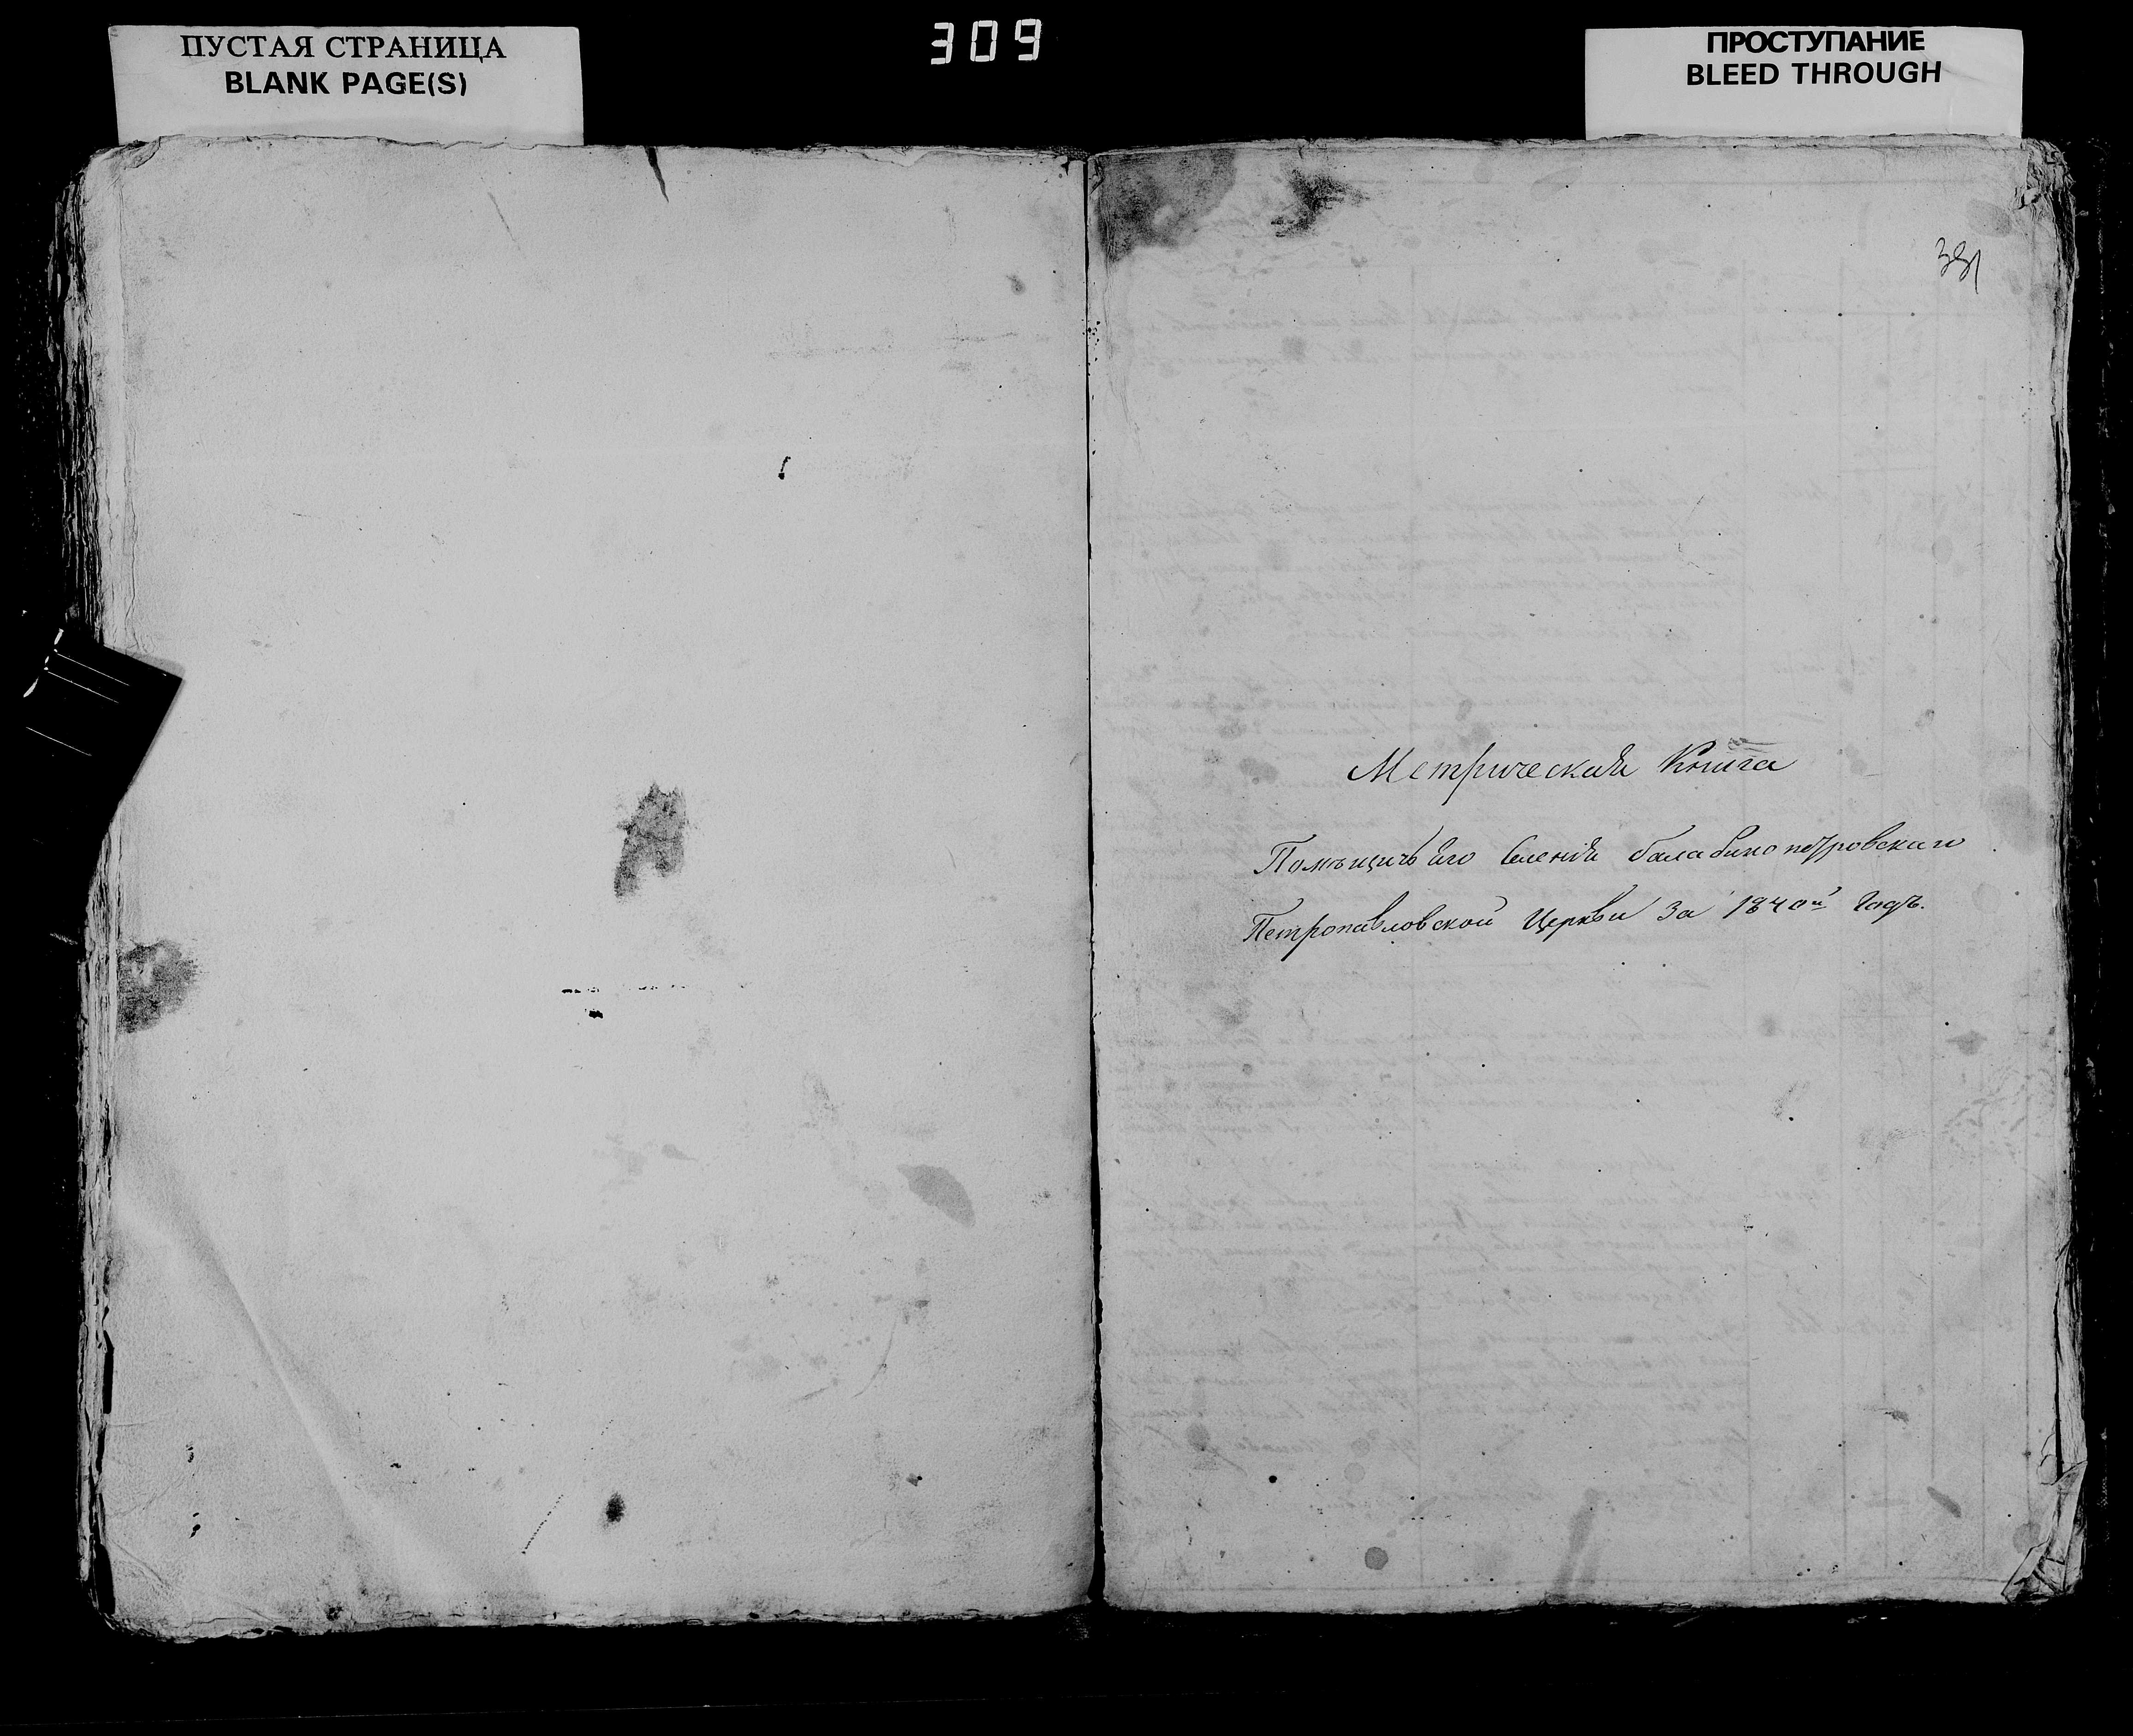 ПУСТАЯ СТРАНИЦА
BLANK PAGE(S)
309
ПРОСТУПАНИЕ
BLEED THROUGH
Метрическая Книга
Помъщичьяго Селенія балабинопетровскаго
Петропавловской Церкви За 1840й Годъ.